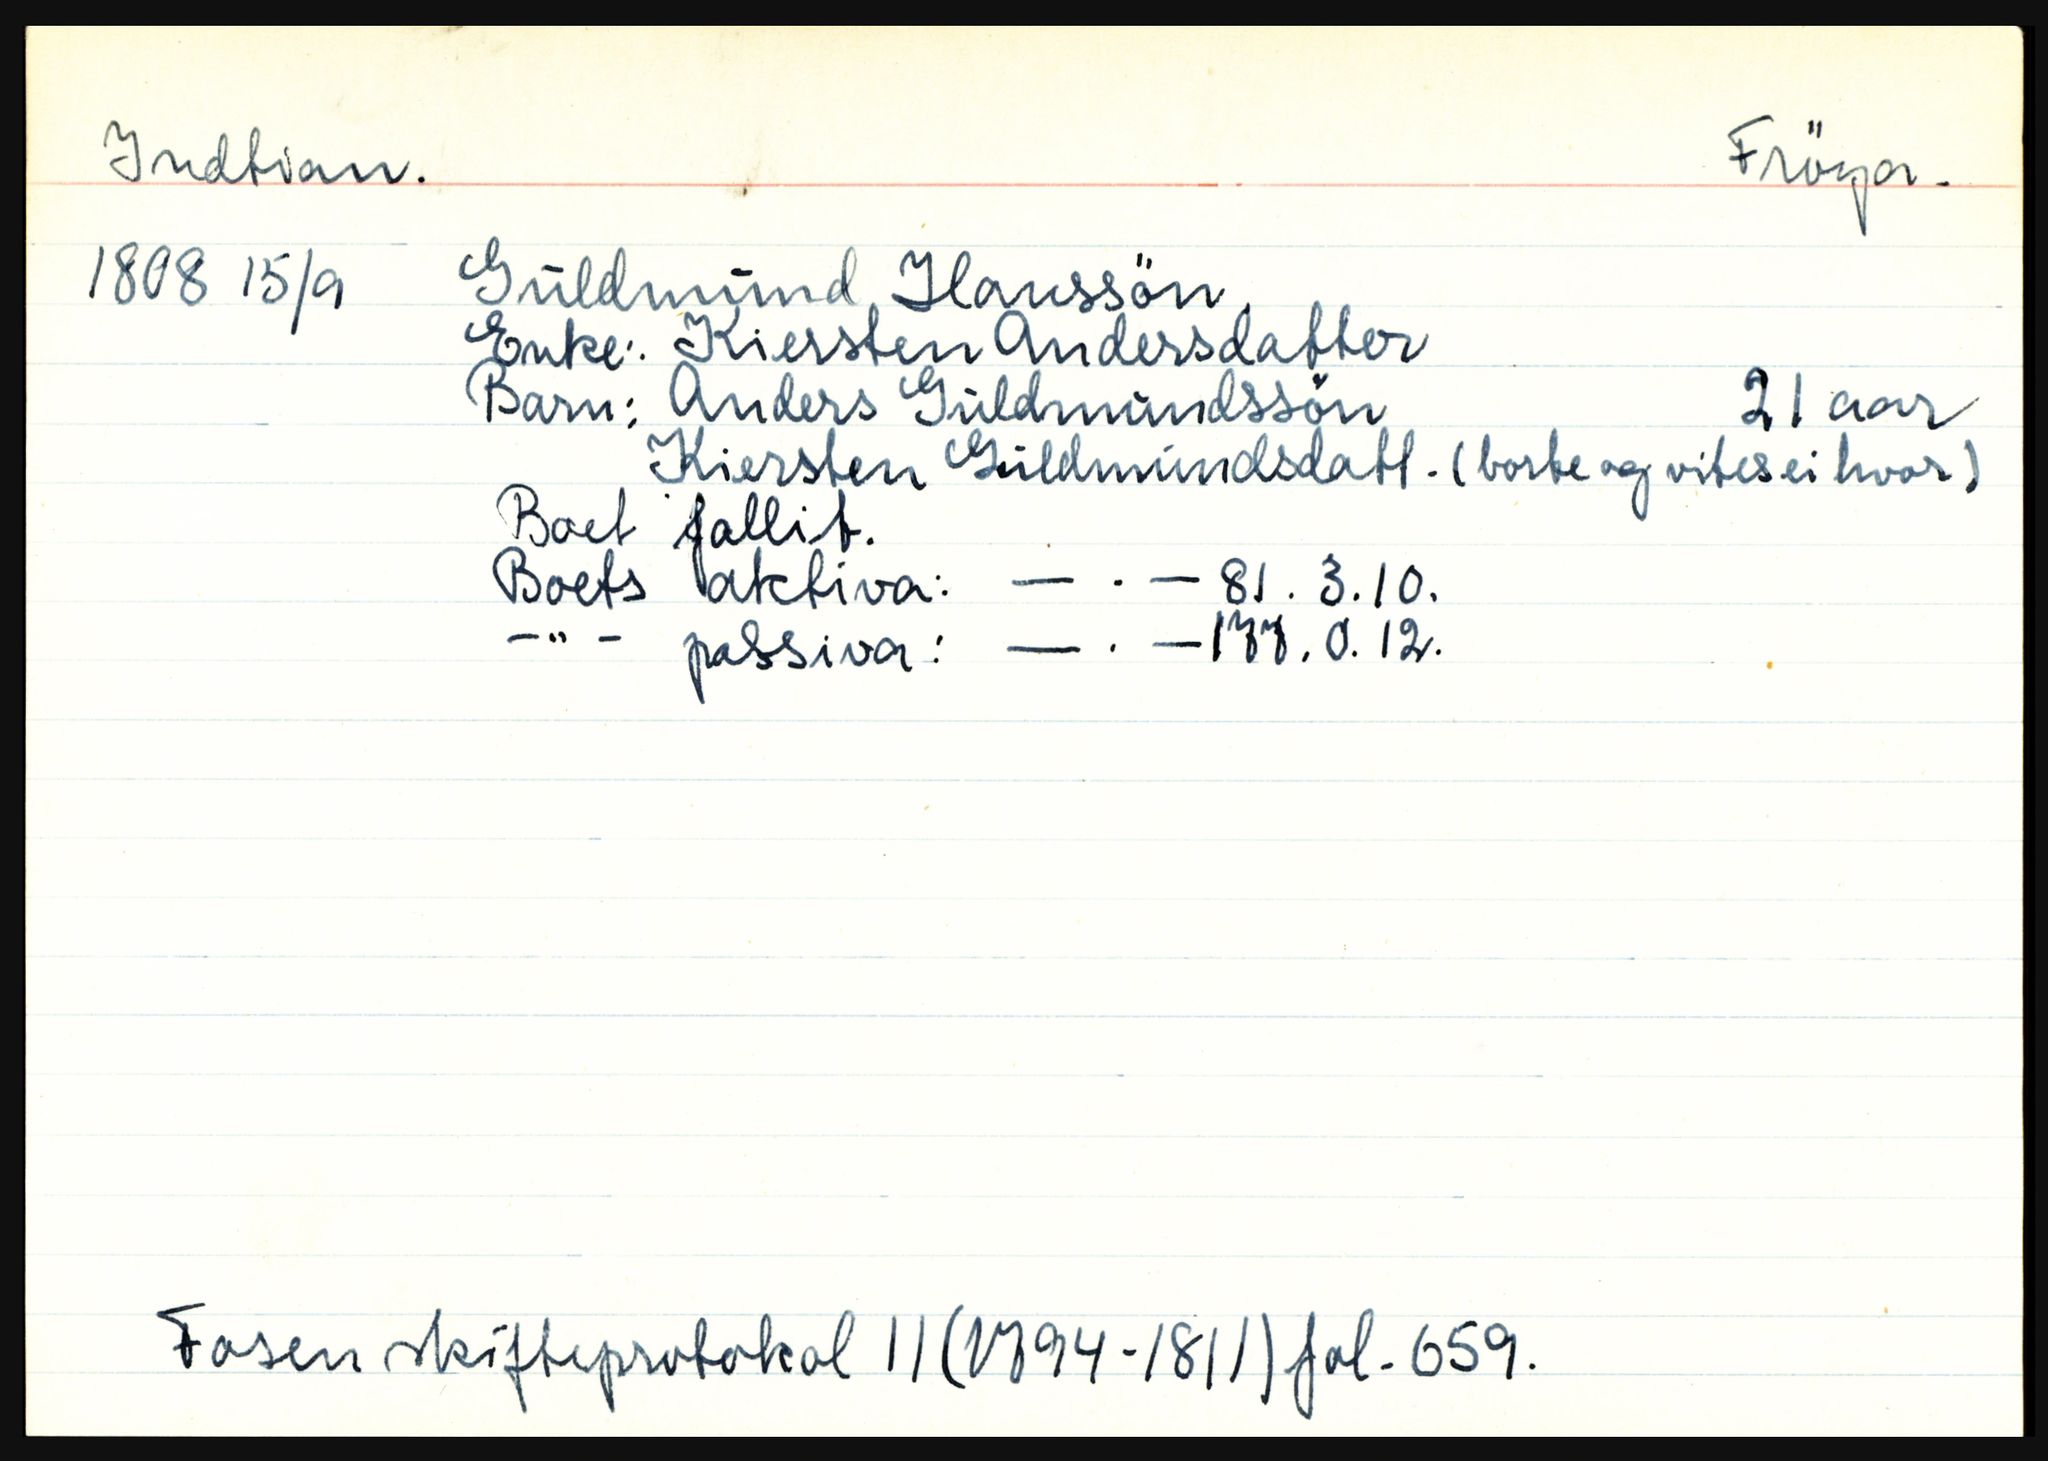 Indtian. Fröya.
1808 15/9 Guldmund Hanssön.
Enke: Kiersten Andersdatter
Barn: Anders Guldmundssön 21 aar
Kiersten Guldmundsdatt. (borte og vites ei hvor)
Boet fallit.
Boets aktiva: — . — 81. 3. 10.
-"- passiva: — . — 177. 0. 12.
Fosen skifteprotokol 11 (1794-1811) fol. 659.